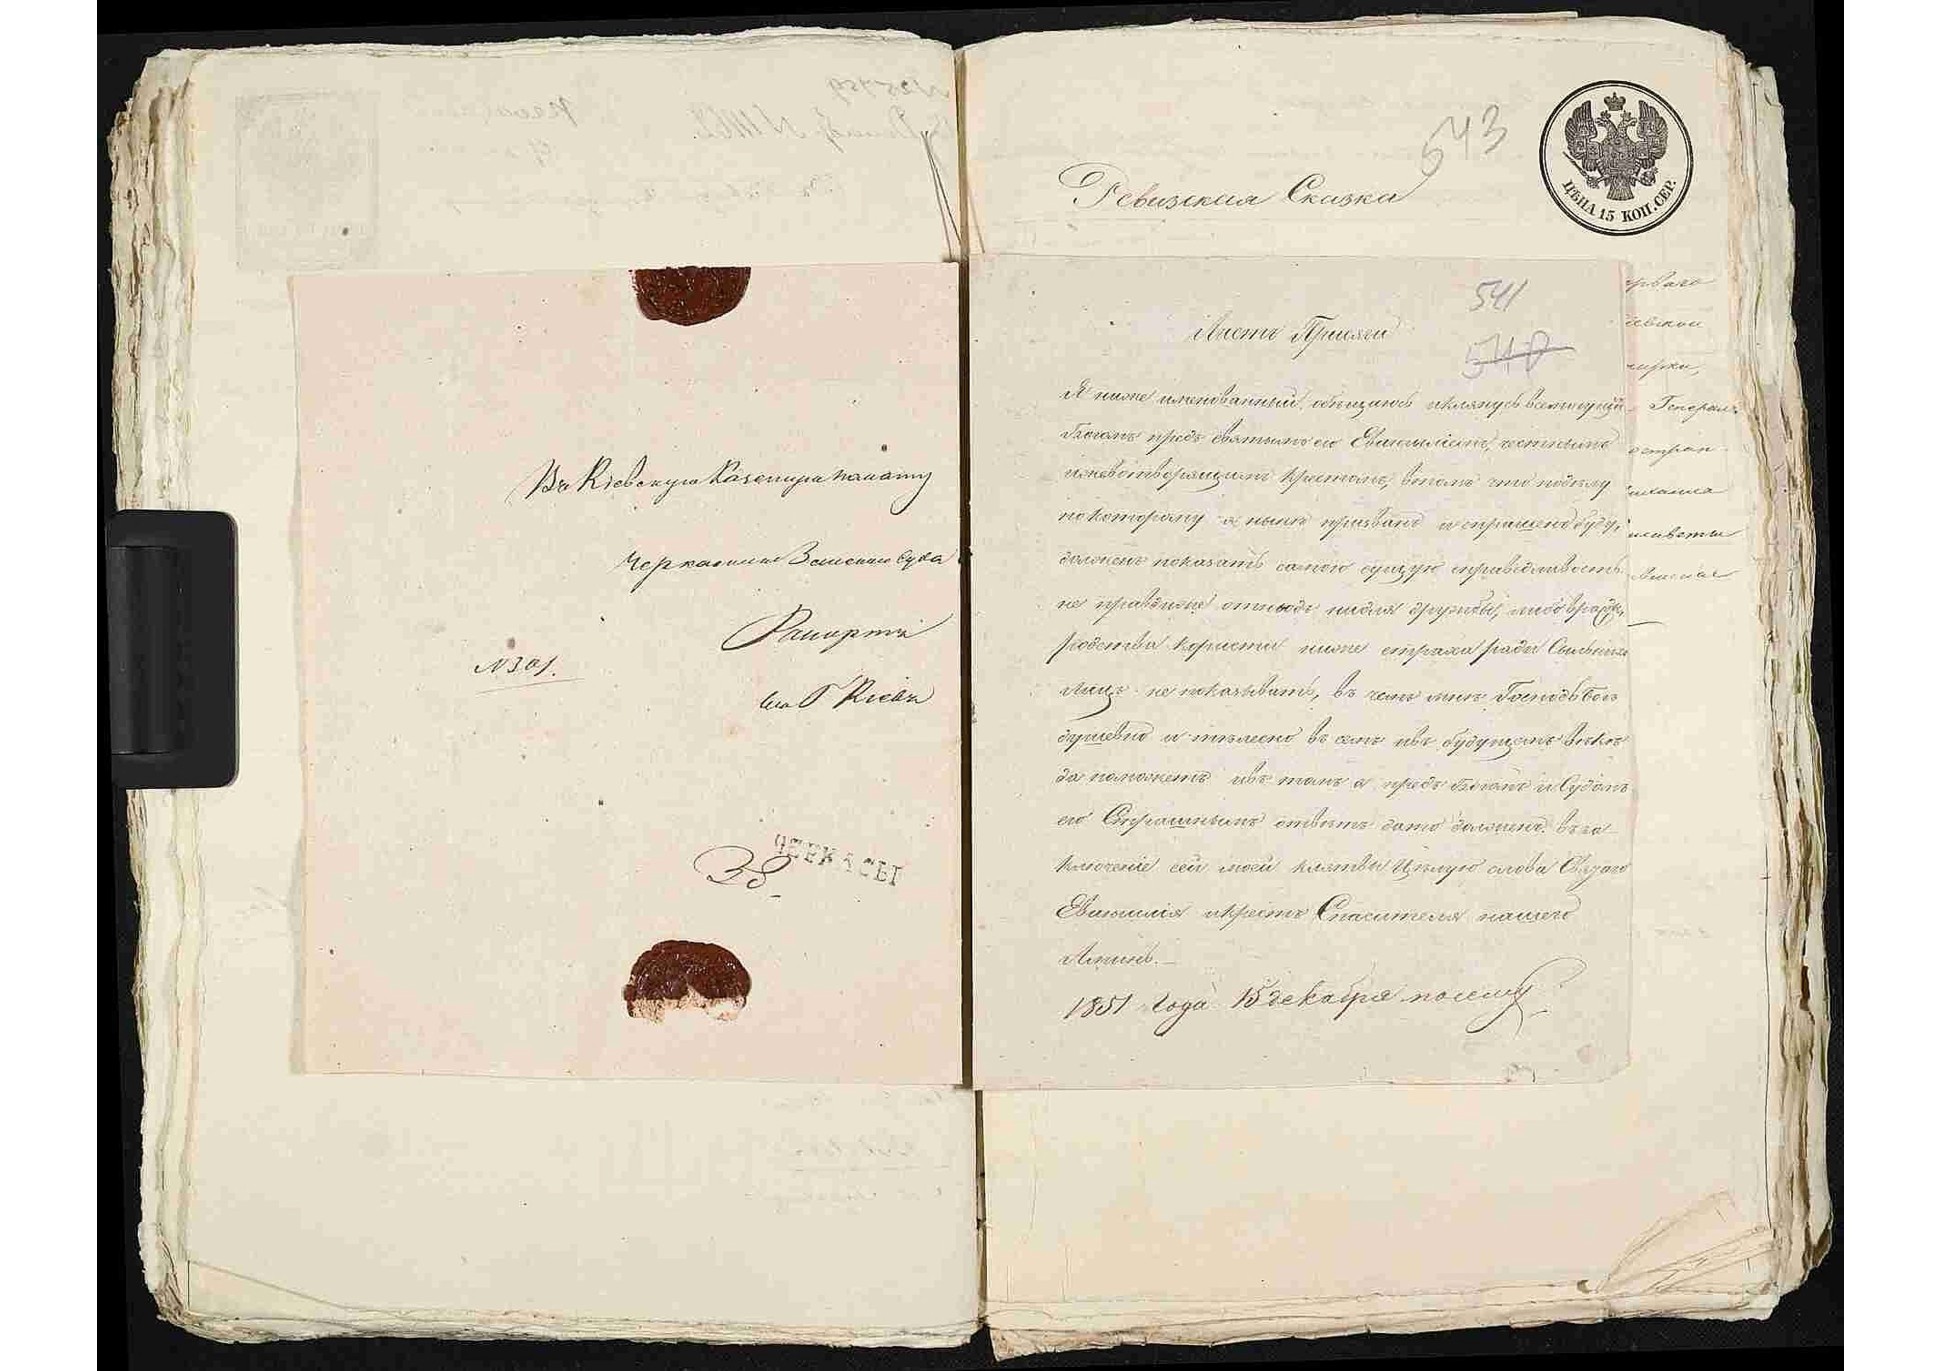 Въ Кіевскую Казенную палату
Черкаскаго Земскаго Суда
Рапортъ
№ 301.
въ Г Кіевъ
ЧЕРКАСЫ
38
543
Ревизская Сказка
ЦѢНА 15 КОП. СЕР.
541
Листъ Присяги
540
Я ниже именованный, обещаюсь и клянусь всемогущимъ
Богомъ предъ святымъ его Евангеліемъ, честнымъ
и животворящимъ крестомъ, втомъ что поделу
по которому я ныне призванъ и спрашенъ буду,
долженъ показать самою сущую справедливость
не правдиже отнюдь нидля дружбы, либо вражды,
родства корысти ниже страха ради Сильныхъ
Лицъ не показывать, въ чемъ мне Господь Богъ
душевно и телесно въ семъ ивъ будущемъ веке
да поможетъ ивъ томъ я предъ Богомъ и Судомъ
его Страшнымъ ответъ дать долженъ. въ за
ключеніе сей моей клятвы Целую слова Святаго
Евангелія икрестъ Спасителя нашего
Аминь.
1851 года 15 декабря по сему
рваго
евской
Генералъ